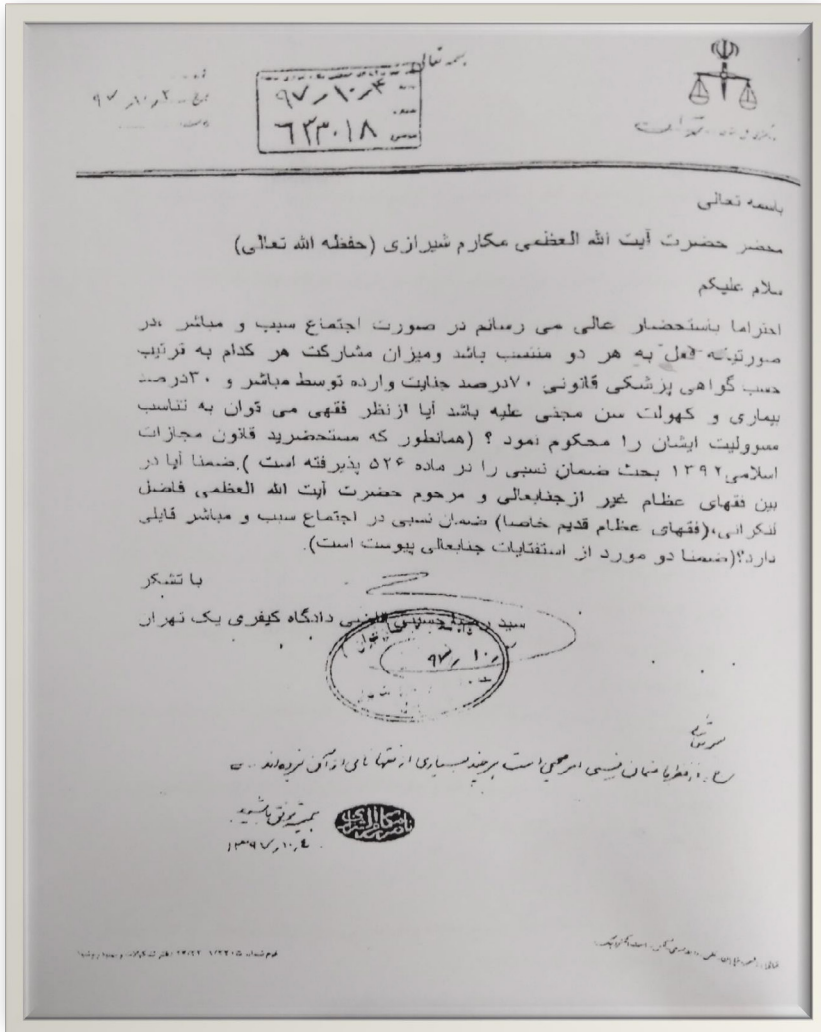 بسمه تعالی
۹۷٫۱۰٫۴
۶۳۰۱۸
۹۷٫۱۰٫۲
باسمه تعالی
محضر حضرت آیت الله العظمی مکارم شیرازی (حفظه الله تعالی)
سلام علیکم
احتراما باستحضار عالی می رسانم در صورت اجتماع سبب و مباشر ،در
صورتیکه فعل به هر دو منتسب باشد ومیزان مشارکت هر کدام به ترتیب
حسب گواهی پزشکی قانونی ۷۰درصد جنایت وارده توسط مباشر و ۳۰درصد
بیماری و کهولت سن مجنی علیه باشد آیا ازنظر فقهی می توان به تناسب
مسوولیت ایشان را محکوم نمود ؟ (همانطور که مستحضرید قانون مجازات
اسلامی۱۳۹۲ بحث ضمان نسبی را در ماده ۵۲۶ پذیرفته است ).ضمنا آیا در
بین فقهای عظام غیر ازجنابعالی و مرحوم حضرت آیت الله العظمی فاضل
لنکرانی،(فقهای عظام قدیم خاصا) ضمان نسبی در اجتماع سبب و مباشر قایلی
دارد؟(ضمنا دو مورد از استفتایات جنابعالی پیوست است).
با تشکر
سید حسینی قاضی دادگاه کیفری یک تهران
۹۷٫۱۰
از نظر ما ضمان نسبی امر صحیحی است هر چند بسیاری از فقها نامی از آن نبرده‌اند
همیشه موفق باشید
۱۳۹۷٫۱۰٫۴